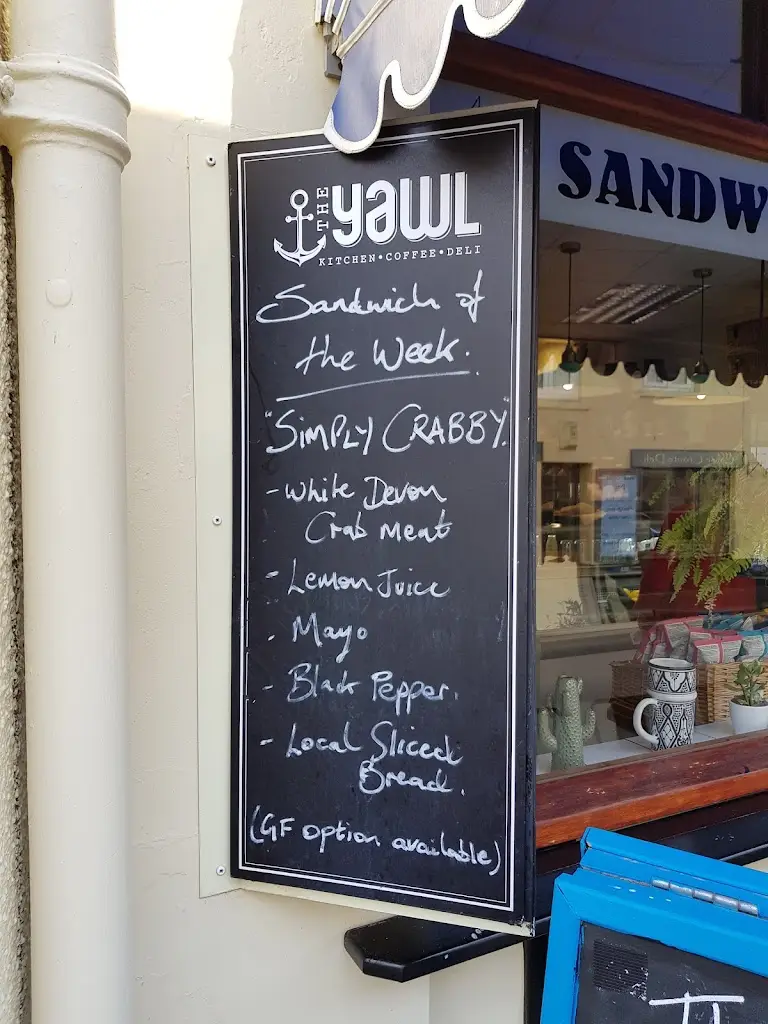 THE YAWL
KITCHEN•COFFEE•DELI
Sandwich of
the Week.
"SIMPLY CRABBY."
- White Devon
Crab Meat
- Lemon Juice
- Mayo
- Black Pepper.
- Local Sliced
Bread.
(GF option available)
SANDW